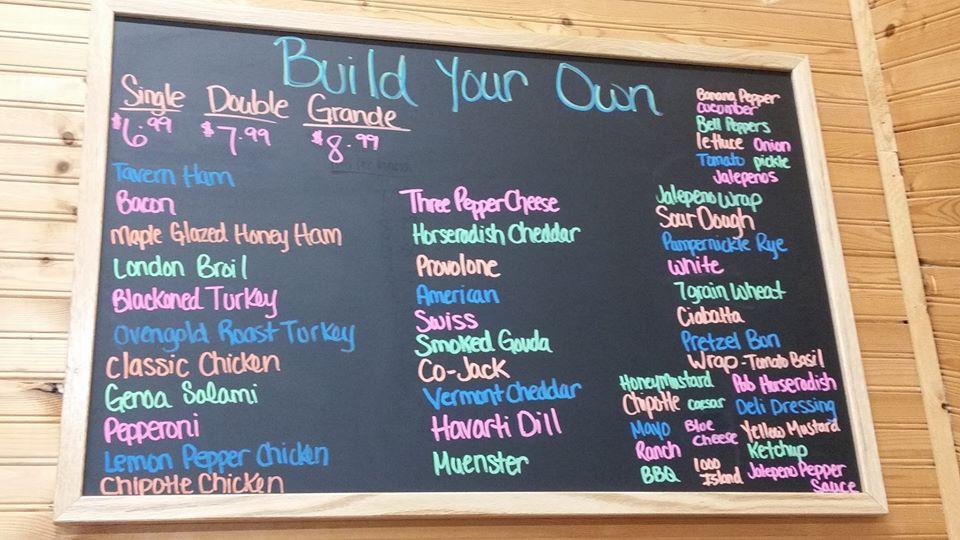 Build Your Own
Single Double Grande
$6.99 $7.99 $8.99
Tavern Ham
Bacon
Maple Glazed Honey Ham
London Broil
Blackened Turkey
Ovengold Roast Turkey
Classic Chicken
Genoa Salami
Pepperoni
Lemon Pepper Chicken
Chipotle Chicken
Three Pepper Cheese
Horseradish Cheddar
Provolone
American
Swiss
Smoked Gouda
Co-Jack
Vermont Cheddar
Havarti Dill
Muenster
Banana Pepper
Cucumber
Bell Peppers
lettuce Onion
Tomato pickle
Jalepenos
Jalepeno Wrap
Sour Dough
Pumpernickle Rye
White
7 grain Wheat
Ciabatta
Pretzel Bun
Wrap - Tomato Basil
Honey Mustard Pub Horseradish
Chipotle caesar Deli Dressing
Mayo Blue Cheese Yellow Mustard
Ranch Ketchup
BBQ 1000 Island Jalepeno Pepper Sauce